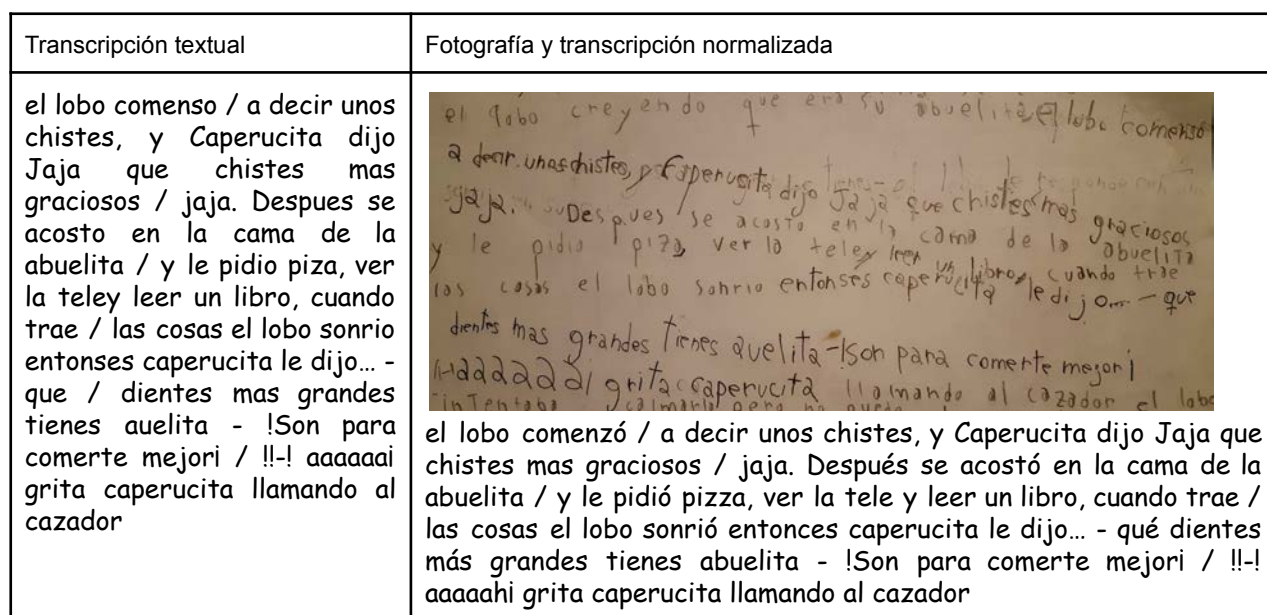 Transcripción textual
Fotografía y transcripción normalizada
el lobo comenso / a decir unos
chistes, y Caperucita dijo
Jaja que chistes mas
graciosos / jaja. Despues se
acosto en la cama de la
abuelita / y le pidio piza, ver
la teley leer un libro, cuando
trae / las cosas el lobo sonrio
entonses caperucita le dijo... -
que / dientes mas grandes
tienes auelita - !Son para
comerte mejori / !!-! aaaaaai
grita caperucita llamando al
cazador
el lobo creyendo que era su abuelita, el lobo comenso
a decir unos chistes, y Caperucita dijo Jaja que chistes mas graciosos
jaja. Despues se acosto en la cama de la abuelita
y le pidio piza, ver la teley leer un libro, cuando trae
las cosas el lobo sonrio entonses caperucita le dijo... - que
dientes mas grandes tienes auelita - !Son para comerte mejori
aaaaaa grita caperucita llamando al cazador el lobo
intentaba calmarla pero no
el lobo comenzó / a decir unos chistes, y Caperucita dijo Jaja que
chistes mas graciosos / jaja. Después se acostó en la cama de la
abuelita / y le pidió pizza, ver la tele y leer un libro, cuando trae /
las cosas el lobo sonrió entonces caperucita le dijo... - qué dientes
más grandes tienes abuelita - !Son para comerte mejori / !!-!
aaaaahi grita caperucita llamando al cazador